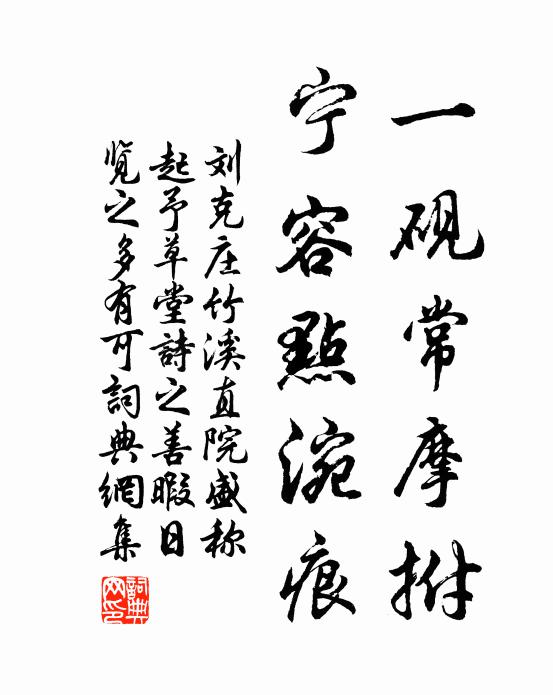 一硯常摩拊
宁容點涴痕
刘克庄竹溪直院盛称
起予草堂詩之善暇日
览之多有可詞典網集
詞典
网印